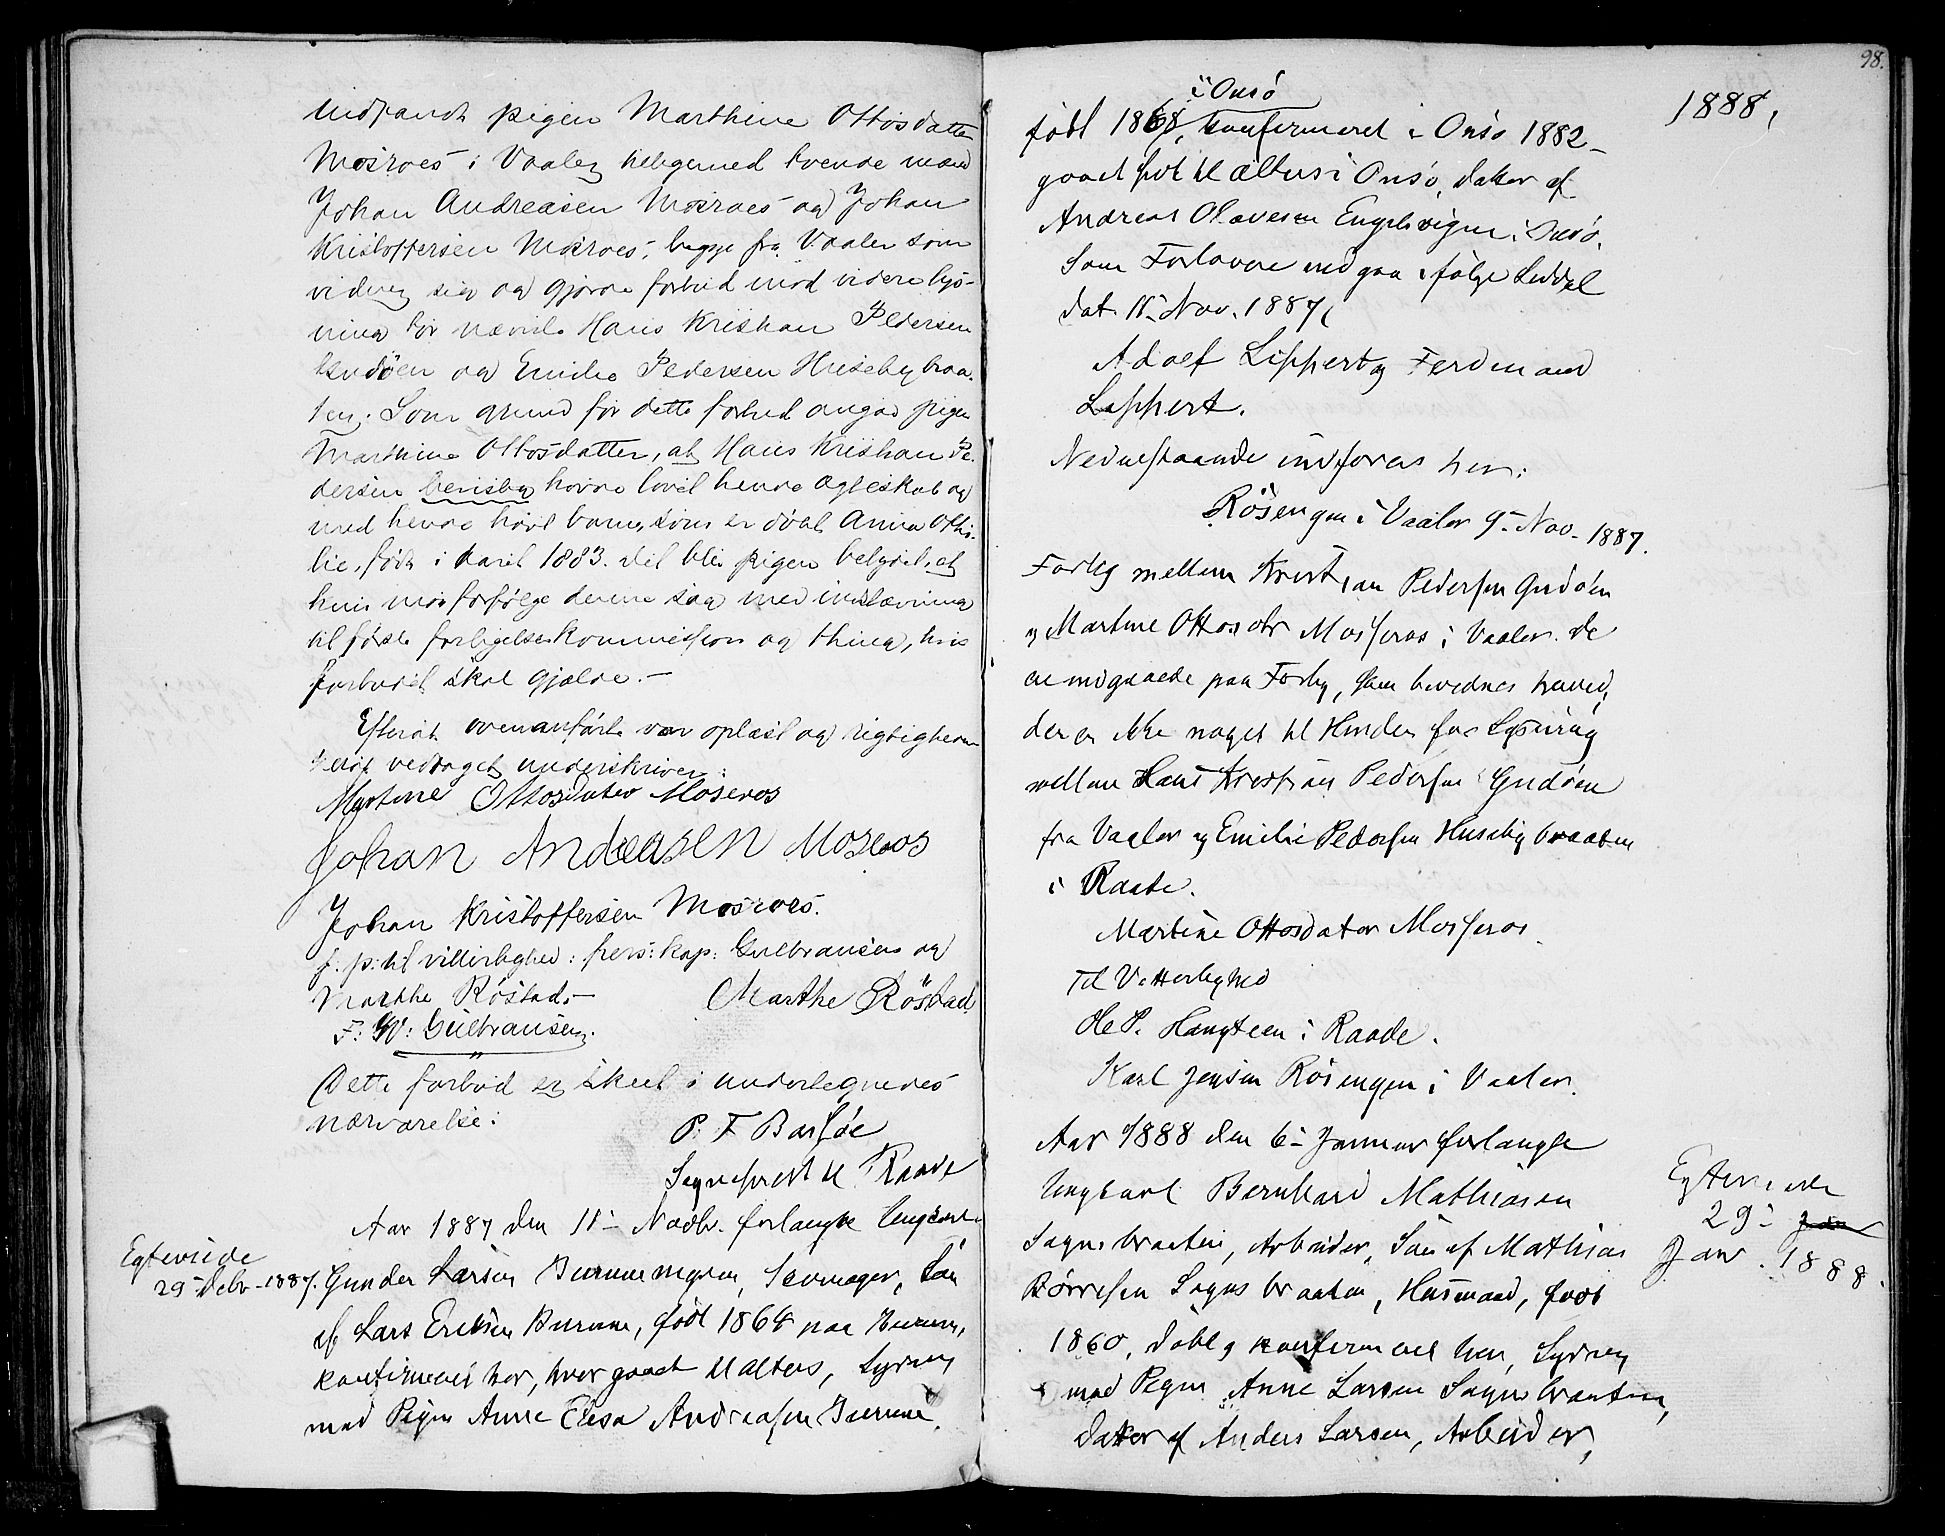 indfandt pigen Marthine Ottosdatter
Mosroes i Vaaler ledsaget med tvende mænd
Johan Andreasen Mosroes og Johan
Kristoffersen Mosroes, begge fra Vaaler som
vidner sig og gjorde forbud mod videre lys-
ning for nævnte Hans Kristian Pedersen
Gudöen og Emilie Pedersen Husebybraa-
ten. Som grund for dette forbud angav pigen
Marthine Ottosdatter, at Hans Kristian Pe-
dersen havde lovet hende ægteskab og
med hende havt barn, som er döbt Anna Othi-
lie, födt i aaret 1883. Det blev pigen betydet, at
hun maa forfölge denne sag med indstævning
til förste forligelseskommission og thing, hvis
forbudet skal gjælde.-
Efterat ovenanförte var oplæst og rigtigheden
deraf vedtaget underskriver:
Martine Ottosdater Moseros
Johan Andreasen Moseros
Johan Kristoffersen Mosroes.
f. p: til vitterlighed: pers: kap: Gulbransen og
Marthe Röstad.- Marthe Röstad
F: W: Gulbransen.
Dette forbud er skeet i undertegnedes
nærværelse:
P. F Barföe
Sogneprest til Raade
Aar 1887 den 11- Novbr. forlangte Ungkarl
Egteviede
29- Debr-1887. Gunder Larsen , Skomager, Sön
af Lars Eriksen , födt 1864 paa ,
konfirmeret her, hvor gaaet til alters, Lysning
med Pigen Anne Elisa Andreasen
98.
1888,
i Onsö
födt 1868, konfirmeret i Onsö 1882-
gaaet hot til alters i Onsö, datter af
Andreas Olavesen Engelsvigen i Onsö.
Som Forlovere indgaa ifölge Seddel
dat. 11- Nov. 1887,
Adolf Lippert og Ferdinand
Lippert.
Nedenstaaende indföres her:
Rösengen i Vaaler 9- Nov. 1887.
Forlig mellem Kristian Pedersen Gudöen
og Martine Ottosdtr Mosseros i Vaaler. De
ere indgaaede paa Forlig, som bevidnes herved,
der er ikke noget til Hinder for Lysning
mellem Hans Kristian Pedersen Gudöen
fra Vaaler og Emilie Pedersen Husebybraaten
i Raade.
Martine Ottosdator Mosseros
Til Vitterlighed
Ole P. Haugsteen i Raade.
Karl Jensen Rösengen i Vaaler.
Aar 1888 den 6- Januar forlangte
Ungkarl Bernhard Mathiasen
Sognsbraaten, Arbeider, Sön af Mathias
Börresen Sognsbraaten, Husmand, födt
1860, döbt og konfirmeret her, Lysning
med Pigen Anne Larsen Sognsbraaten,
Datter af Anders Larsen, Arbeider,
Egteviede
29- Jan
Jan. 1888.